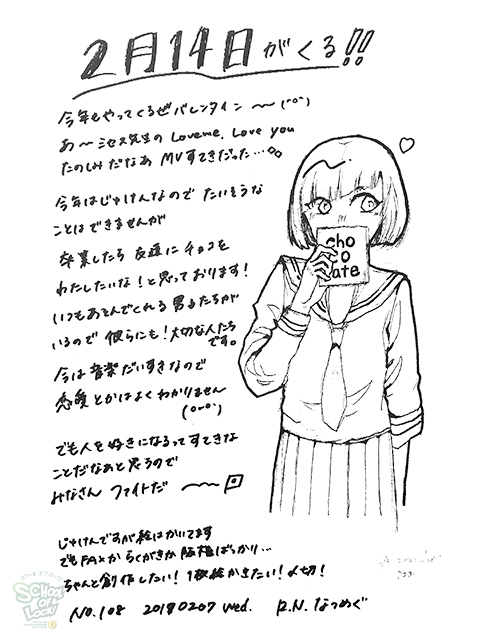 2月14日がくる!!
今年もやってくるぜバレンタイン 〜〜
あ〜ミセス先生の Loveme, Love you
たのしみだなあ MVすてきだった…
今年はじゅけんなので たいそうな
ことはできませんが
卒業したら 友達にチョコを
わたしたいな!と思っております!
いつもあそんでくれる 男子たちが
いるので 彼らにも!大切な人たち
です。
今は音楽だいすきなので
恋愛とかはよくわかりません
でも人を好きになるってすてきな
ことだなあと思うので
みなさん ファイトだ
cho
co
ate
じゅけんですが絵はかいてます
でもFAXから らくがきか 版権ばっかり…
ちゃんと創作したい!1枚絵かきたい!〆切!
No.108 20190207 wed. R.N.なつめぐ
SCHOOL
OF
LOCK!